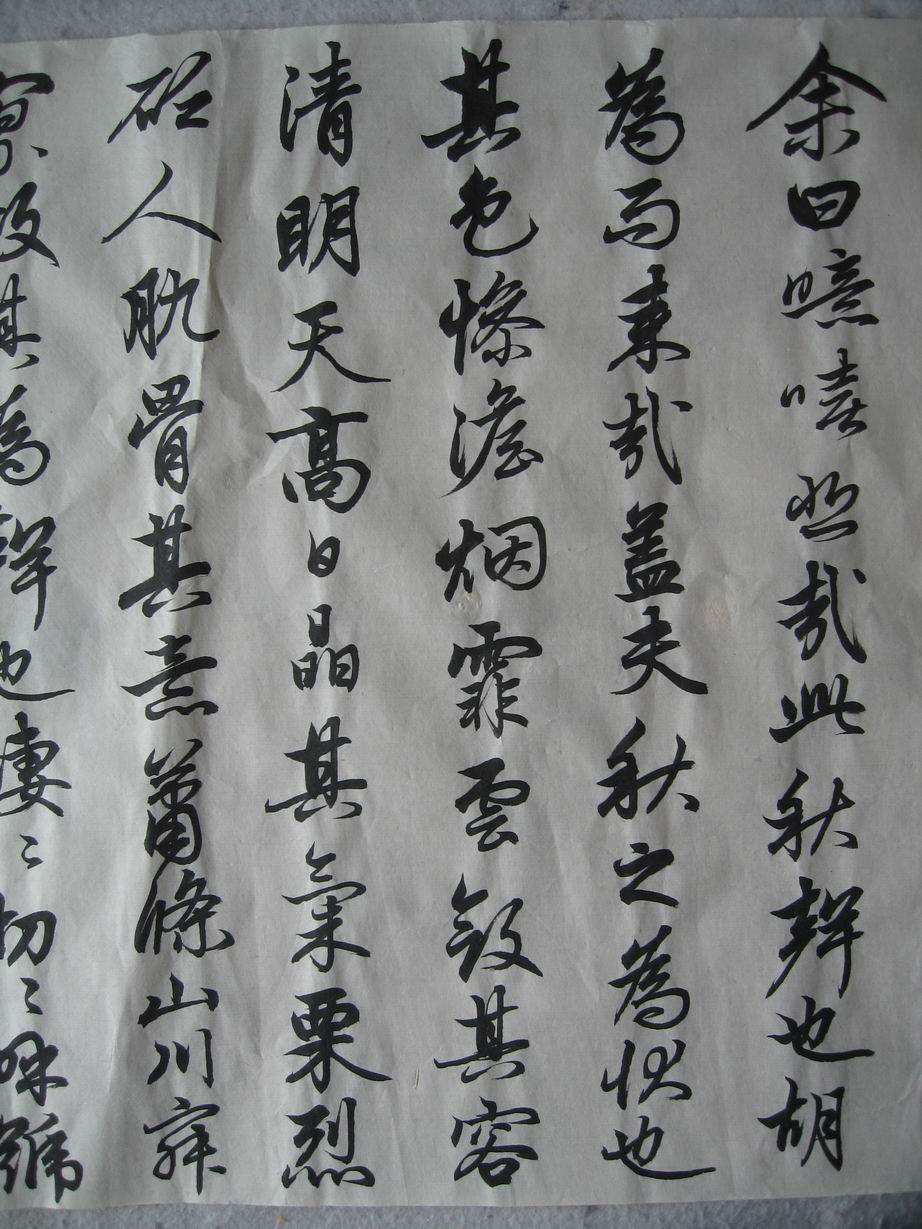 余曰噫嘻悲哉此秋聲也胡
為而來哉盖夫秋之為狀也
其色慘澹烟霏雲斂其容
清明天高日晶其氣栗烈
砭人肌骨其意蕭條山川寂
寥故其為聲也凄〻切〻呼號